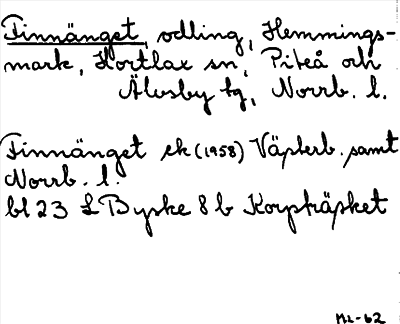 Finnänget, odling, Hemmings-
mark, Hortlax sn, Piteå och
Älvsby tg, Norrb. l.
Finnänget ek (1958) Västerb. samt
Norrb. l.
bl 23 L Byske 8 b Korsträsket
ML-62